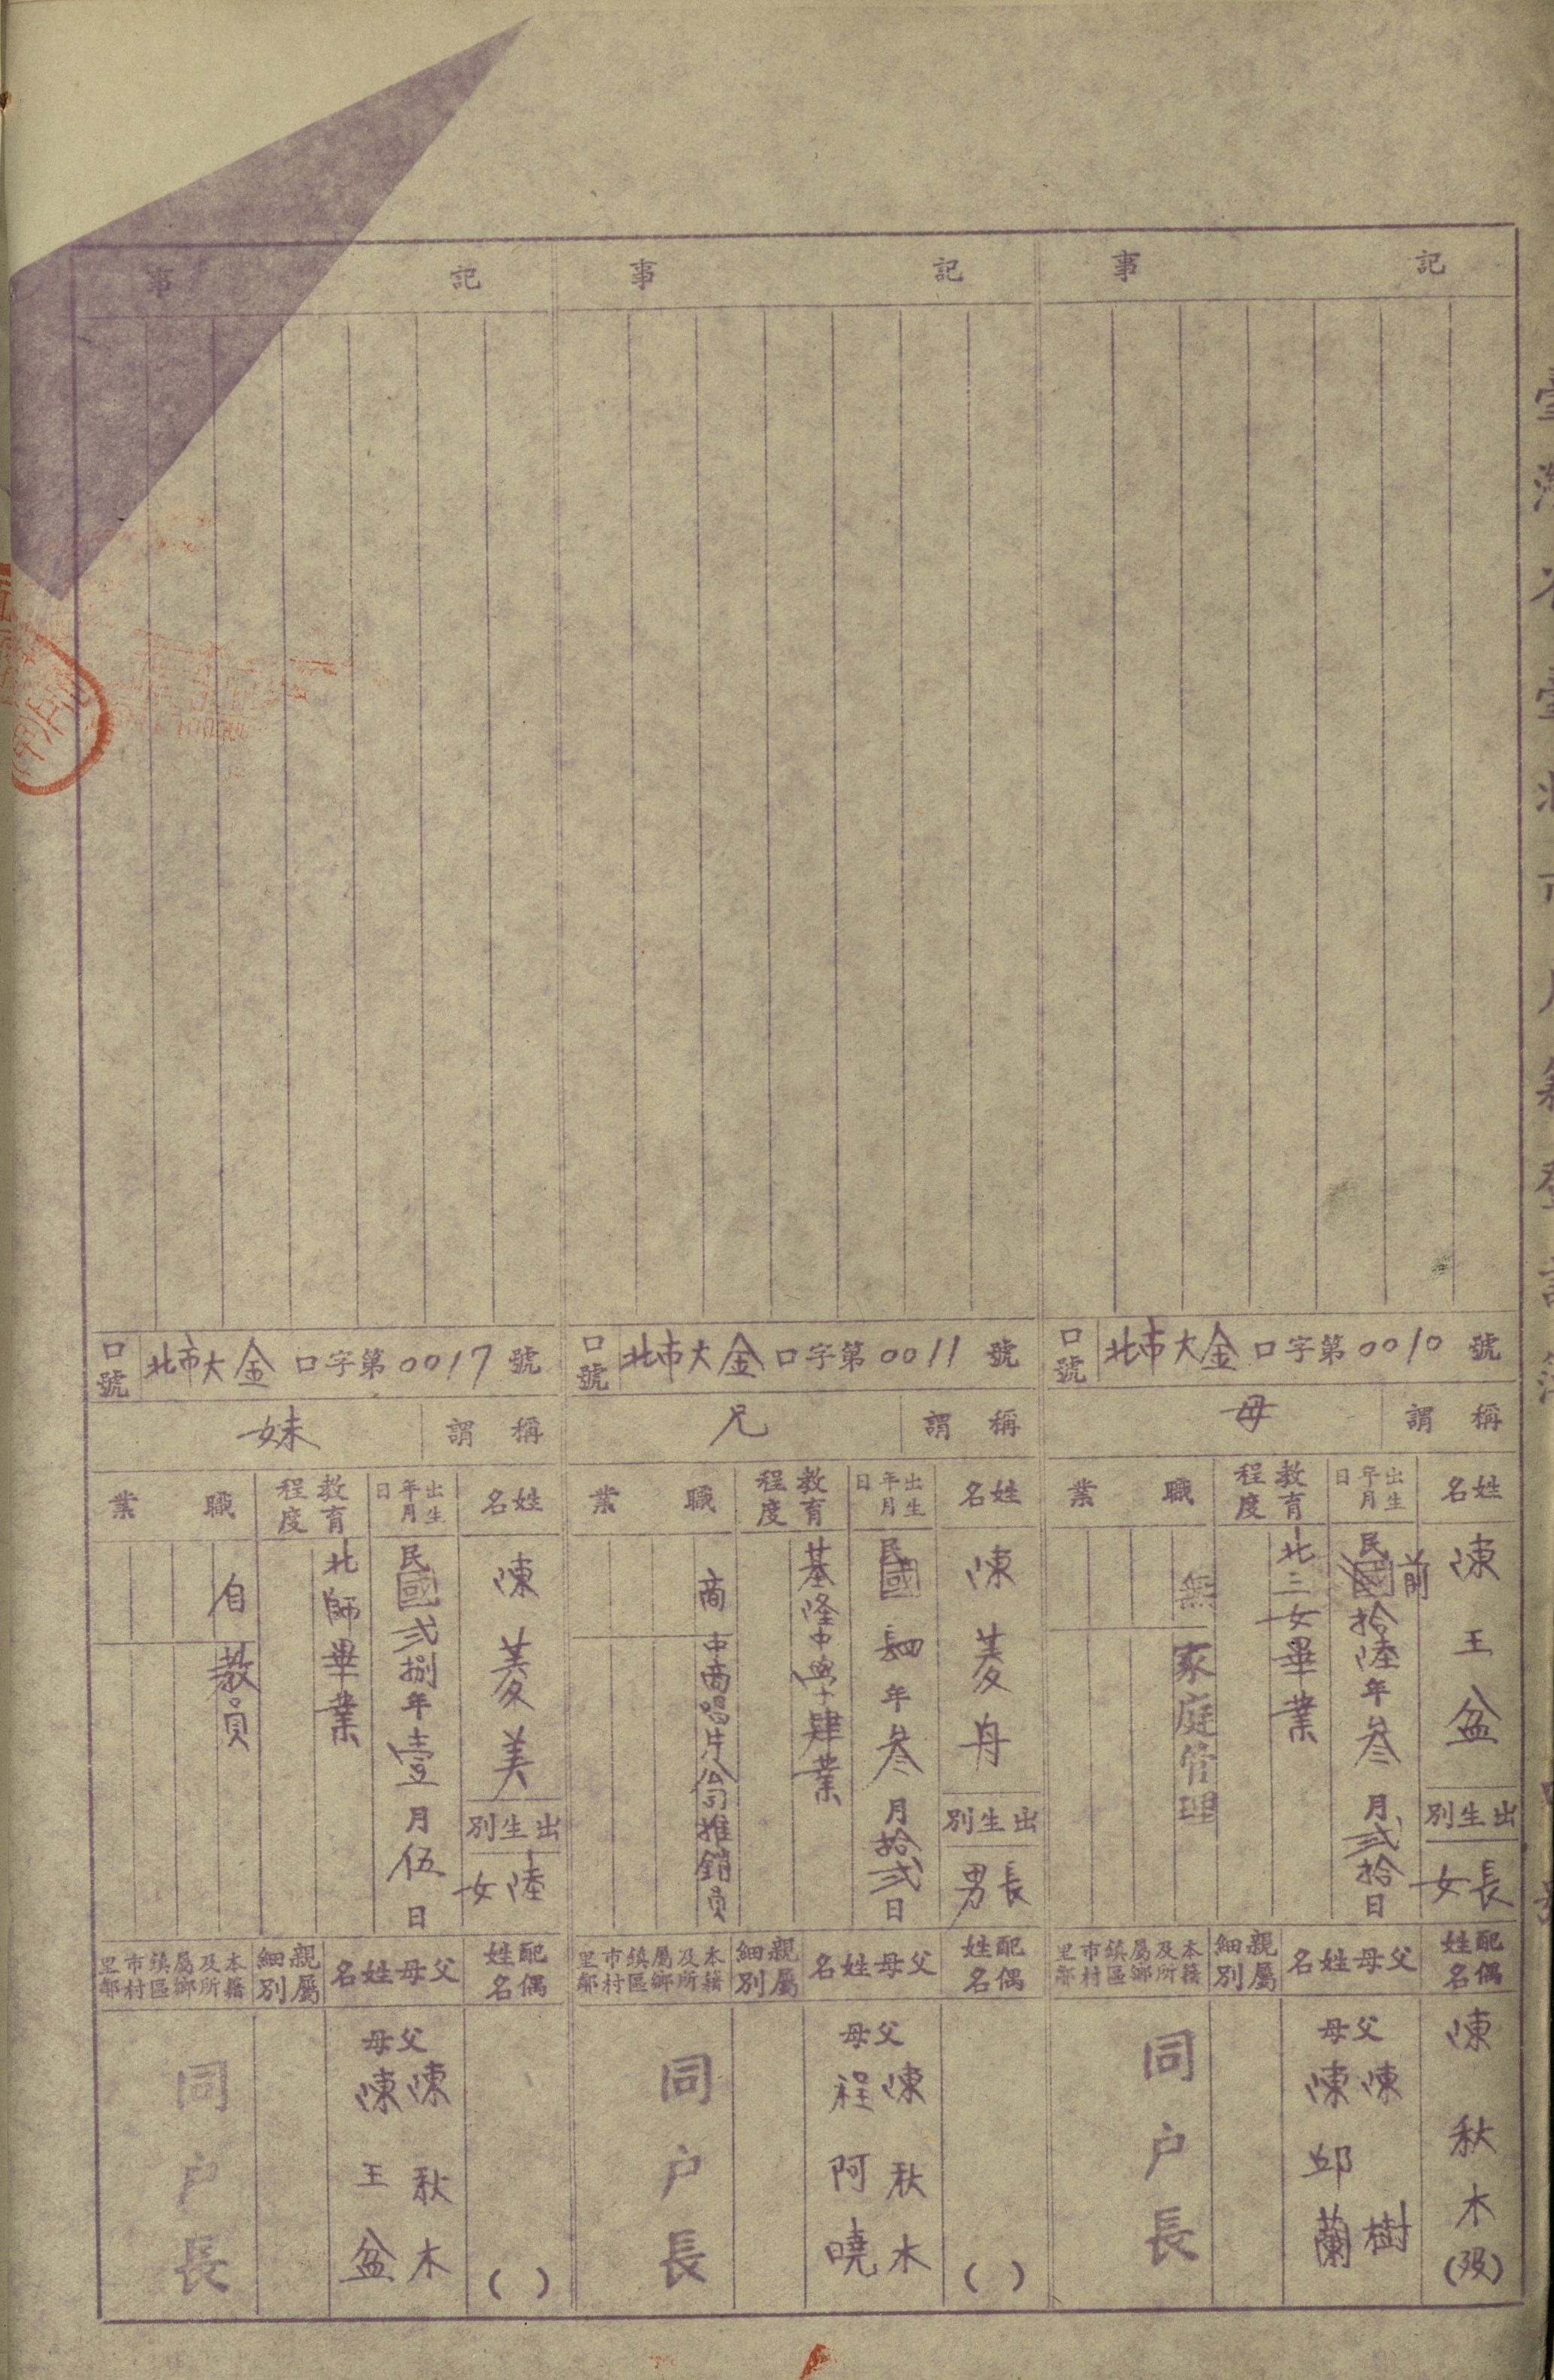 記事
口號 北市大金口字第0010號
稱謂 母
姓名 陳王盆
出生別 長女
出生年月日 民國前拾陸年叁月貳拾日
教育程度 北三女畢業
職業 無 家庭管理
配偶姓名 陳秋木(歿)
父母姓名 父 陳樹
母 陳邱蘭
親屬細別
本籍及所屬鄉鎮區市村里鄰 同户長
記事
口號 北市大金口字第0011號
稱謂 兄
姓名 陳菱舟
出生別 長男
年叁月拾貳日
教育程度 基隆中學肄業
職業 商 中商唱片公司推銷員
配偶姓名 ( )
父母姓名 父 陳秋木
母 程阿曉
親屬細別
本籍及所屬鄉鎮區市村里鄰 同户長
記事
口號 北市大金口字第0017號
稱謂 妹
姓名 陳菱美
出生別 陸女
出生年月日 民國貳捌年壹月伍日
教育程度 北師畢業
職業 自 教員
配偶姓名 ( )
父母姓名 父 陳秋木
母 陳王盆
親屬細別
本籍及所屬鄉鎮區市村里鄰 同户長